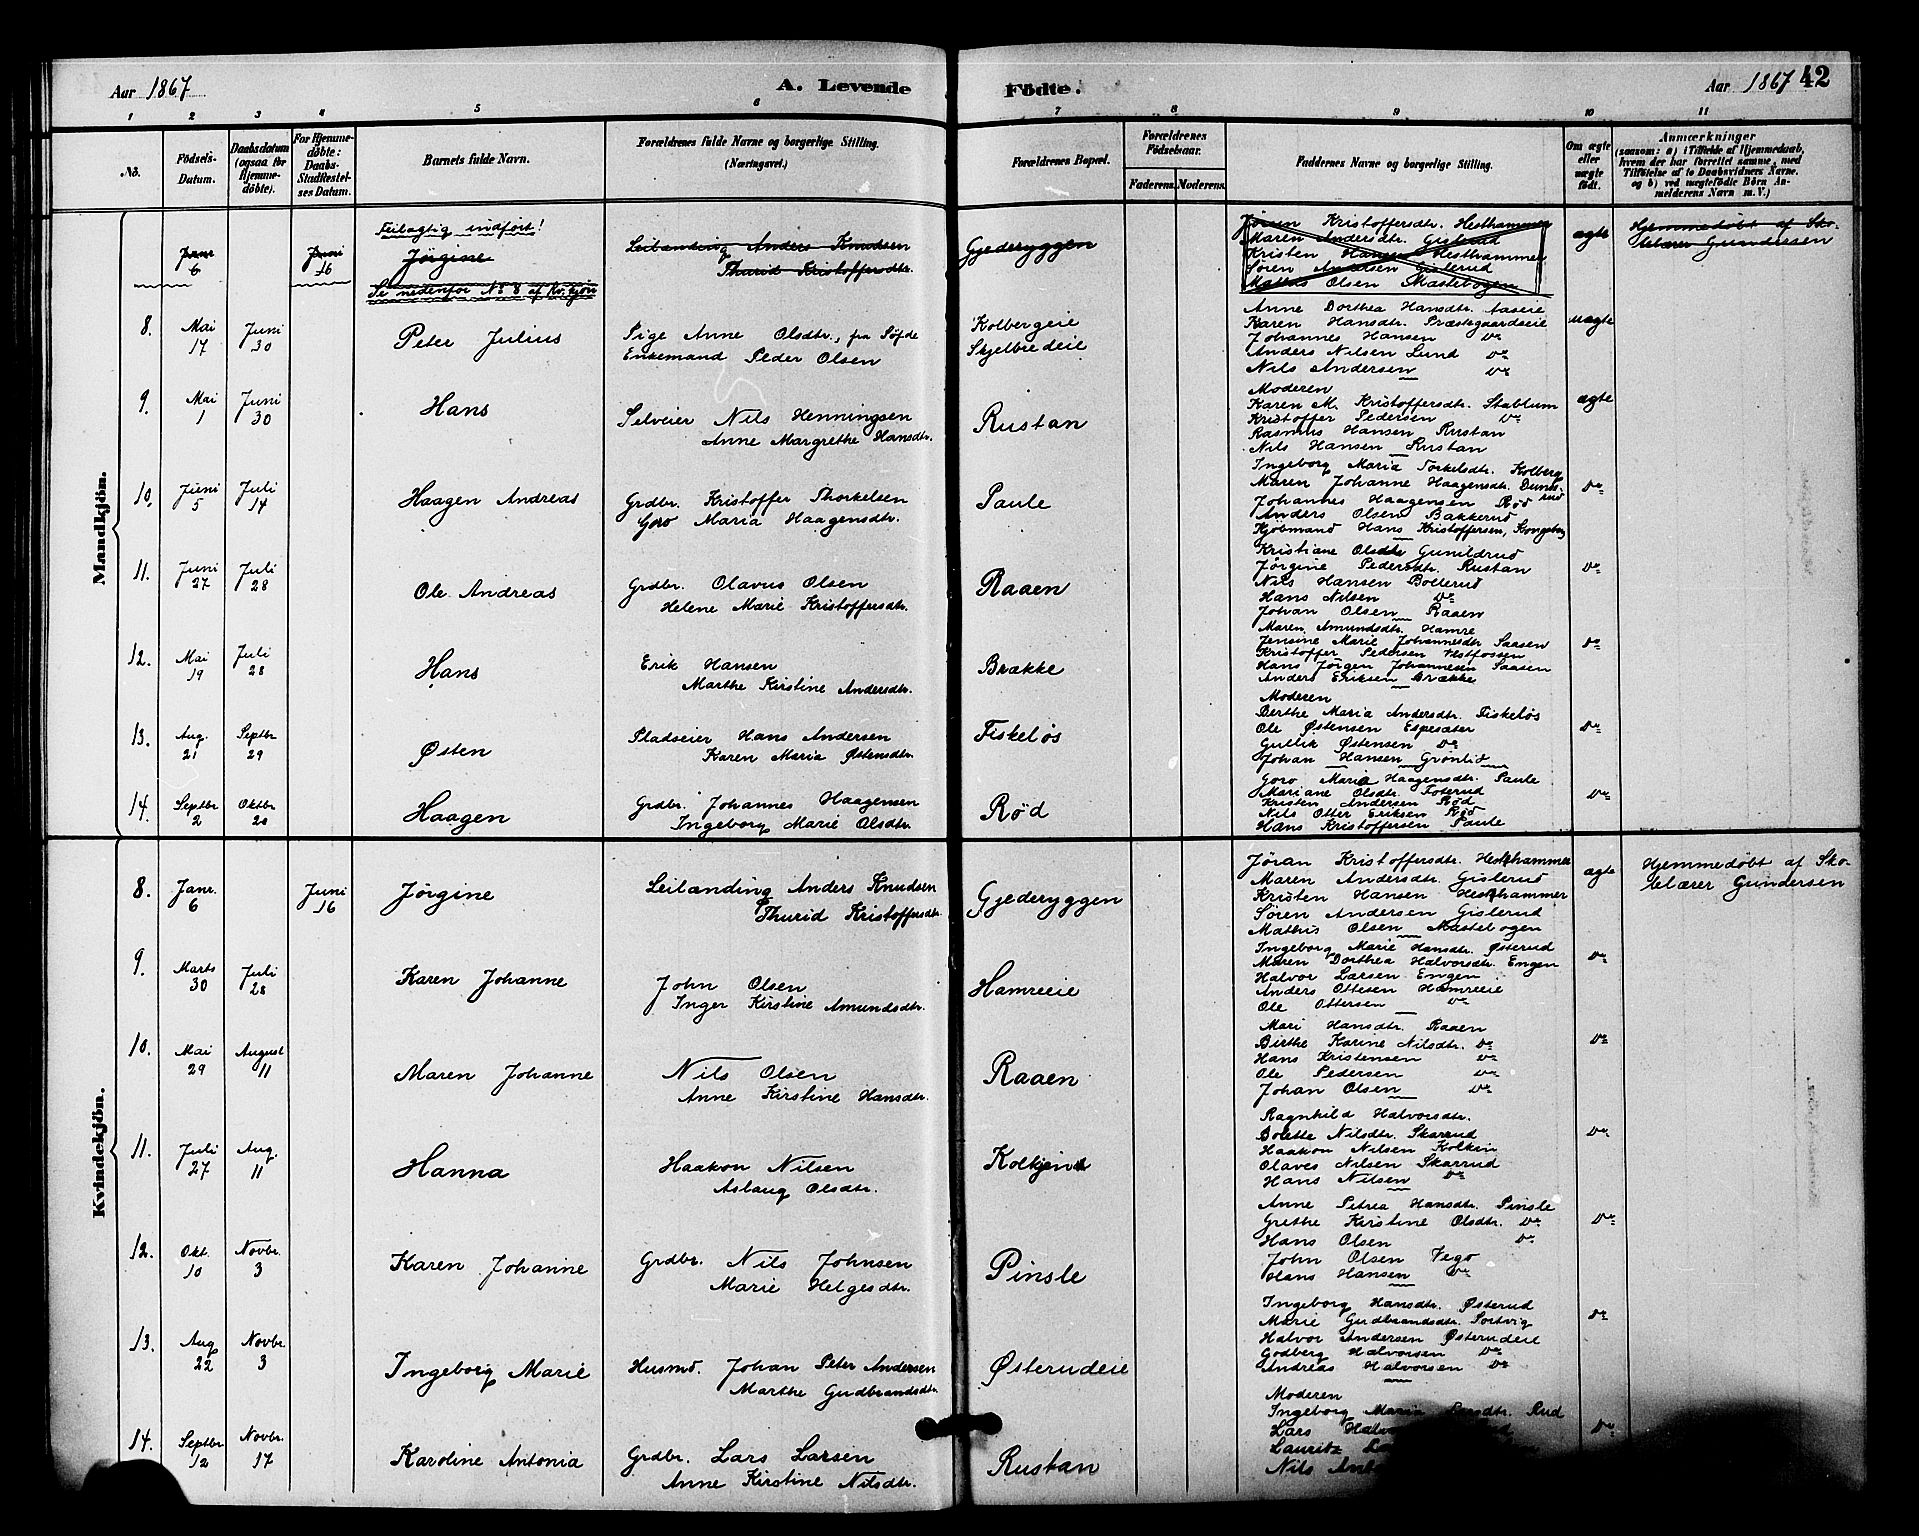 Aar 1867
A. Levende
Födte.
Aar 1867
42
1 2 3 4 5 6 7 8 9 10 11
No.
Födsels-Datum.
Daabsdatum (ogsaa for Hjemmedöbte).
For Hjemmedöbte: Daabs-Stadfæstelses Datum.
Barnets fulde Navn.
Forældrenes fulde Navne og borgerlige Stilling. (Næringsvei.)
Forældrenes Bopæl.
Forældrenes Födselsaar.
Faderens. Moderens.
Faddernes Navne og borgerlige Stilling.
Om ægte eller uægte födt.
Anmærkninger
(saasom: a) i Tilfælde af Hjemmedaab, hvem der har forrettet samme, med Tilföielse af to Daabsvidners Navne, og b) ved uægtefödte Börn Anmelderens Navn m. V.)
Mandkjön.
Feilagtig indført!
Janr 6
Juni 16
Jørgine
Se nedenfor No 8 af Kv.kjøn
Leilænding Anders Knudsen
Thurid Kristoffersdtr.
Gjederyggen
Jøran Kristoffersdtr. Hesthammer
Maren Andersdtr. Gislerud
Kristen Hansen Hesthammer
Søren Andersen Gislerud
Mathis Olsen Mastebogen
ægte
Hjemmedøbt af Sko-
lelærer Gundersen
8. Mai 17 Juni 30
Peter Julius
Pige Anne Olsdtr., fra
Enkemand Peder Olsen
Kolbergeie
Skjelbredeie
Anne Dorthea Hansdtr. Aaseie
Karen Hansdtr. Præstegaardseie
Johannes Hansen Do
Anders Nilsen Lund Do
Nils Andersen Do
uægte
9. Mai 1 Juni 30
Hans
Selveier Nils Henningsen
Anne Margrethe Hansdtr.
Rustan
Moderen
Karen M. Kristoffersdtr. Stablum
Kristoffer Pedersen Do
Rasmus Hansen Rustan
Nils Hansen Rustan
ægte
10. Juni 5 Juli 14
Haagen Andreas
Grdbr. Kristoffer Thorkelsen
Goro Maria Haagensdtr.
Paule
Ingeborg Maria Torkelsdtr. Kolberg
Maren Johanne Haagensdtr. Dunse-
rud
Johannes Haagensen Rød
Anders Olsen Bakkerud
Kjøbmand Hans Kristoffersen, Kongsberg
Do
11. Juni 27 Juli 28
Ole Andreas
Grdbr. Olavus Olsen
Helene Marie Kristoffersdtr.
Raaen
Kristiane Olsdtr Gunildrud
Jørgine Pedersdtr. Rustan
Nils Hansen Bollerud
Hans Nilsen Do
Johan Olsen Raaen
Do
12. Mai 19 Juli 28
Hans
Erik Hansen
Marthe Kirstine Andersdtr.
Brække
Maren Amundsdtr. Hamre
Jensine Marie Johannesdtr Saasen
Kristoffer Pedersen Vestfossen
Hans Jörgen Johannesen Saasen
Anders Eriksen Brække
Do
13. Aug. 21 Septbr 29
Østen
Pladseier Hans Andersen
Karen Maria Østensdtr.
Fiskeløs
Moderen
Berthe Maria Andersdtr. Fiskeløs
Ole Østensen Espesæter
Gullik Østensen Do
Johan Hansen Grönlid
Do
14. Septbr 2 Oktbr 20
Haagen
Grdbr. Johannes Haagensen
Ingeborg Marie Olsdtr.
Rød
Goro Maria Haagensdtr. Paule
Mariane Olsdtr. Foterud
Kristen Andersen Rød
Nils Otter Eriksen Rød
Hans Kristoffersen Paule
Do
Kvindekjön.
8. Janr. 6 Juni 16
Jørgine
Leilænding Anders Knudsen
Thurid Kristoffersdtr
Gjederyggen
Jøran Kristoffersdtr. Hesthammer
Maren Andersdtr. Gislerud
Kristen Hansen Hesthammer
Søren Andersen Gislerud
Mathis Olsen Mastebogen
ægte
Hjemmedøbt af Sko-
lelærer Gundersen
9. Marts 30 Juli 28
Karen Johanne
John Olsen
Inger Kirstine Amundsdtr.
Hamreeie
Ingeborg Marie Hansdtr. Østerud
Maren Dorthea Halvorsdtr. Engen
Halvor Larsen Engen
Anders Ottesen Hamreeie
Ole Ottersen Do
Do
10. Mai 29 August 11
Maren Johanne
Nils Olsen
Anne Kirstine Hansdtr.
Raaen
Mari Hansdtr. Raaen
Birthe Karine Nilsdtr. Do
Hans Kristensen Do
Ole Pedersen Do
Johan Olsen Do
Do
11. Juli 27 Aug. 11
Hanna
Haakon Nilsen
Aslaug Olsdtr.
Ragnhild Halvorsdtr.
Bolette Nilsdtr. Skarrud
Haakon Nilsen Kolkin
Olaves Nilsen Skarrud
Hans Nilsen Do
Do
12. Okt. 10 Novbr. 3
Karen Johanne
Grdbr. Nils Johnsen
Marie Helgesdtr.
Pinsle
Anne Petrea Hansdtr. Pinsle
Grethe Kirstine Olsdtr. Do
Hans Olsen Do
John Olsen Vego
Hans Hansen Do
Do
13. Aug 22 Novbr. 3
Ingeborg Marie
Husmd. Johan Peter Andersen
Marthe Gudbrandsdtr.
Østerudeie
Ingeborg Hansdtr. Østerud
Marie Gudbrandsdtr. Sortvig
Halvor Andersen Østerudeie
Godberg Halvorsen Do
Andreas Halvorsen Do
Do
14. Septbr 12 Novbr. 17
Karoline Antonia
Grdbr. Lars Larsen
Anne Kirstine Nilsdtr.
Rustan
Moderen
Ingeborg Maria Rud
Lars
Lauritz
Nils
Do